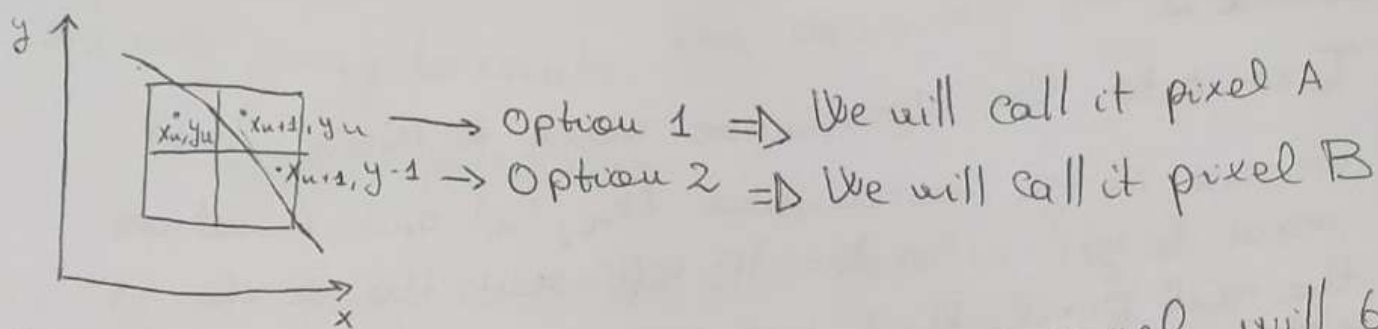 y
xn, yn
xn+1, yn → Option 1 ⇒ We will call it pixel A
xn+1, y-1 → Option 2 ⇒ We will call it pixel B
x
will